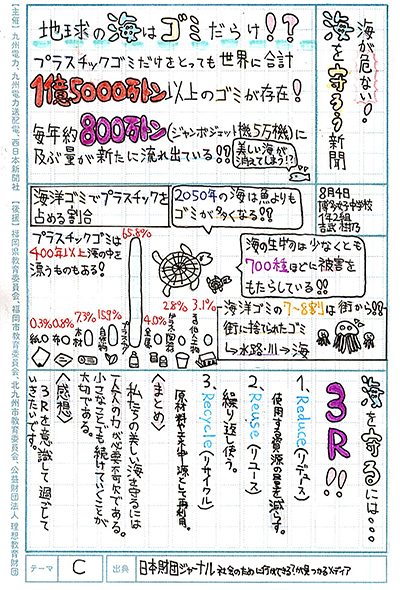 海が危ない!
海を守ろう新聞
地球の海はゴミだらけ!?
プラスチックゴミだけをとっても世界に合計
1億5000万トン以上のゴミが存在!
毎年約800万トン(ジャンボジェット機5万機)に
及ぶ量が新たに流れ出ている!!
美しい海が
消えてしまう!?
8月4日
博多女子中学校
1年2組
海洋ゴミでプラスチックを
占める割合
2050年の海は魚よりも
ゴミが多くなる!!
プラスチックゴミは
400年以上海の中を
漂うものもある!
65.8%
0.3%
0.8%
7.3%
15.9%
4.0%
2.8%
3.1%
紙
布
木材
自然物
プラスチック
金属
海の生物は少なくとも
700種ほどに被害を
もたらしている!!
海洋ゴミの7~8割は街から!!
街に捨てられたゴミ
→水路・川→海
海を守るには…
3R!!
1、Reduce(リデュース)
使用する資源の量を減らす。
2、Reuse(リユース)
繰り返し使う。
3、Recycle(リサイクル)
原材料や末中源として再利用。
〈まとめ〉
私たちの美しい海を守るには
一人一人の力が必要不可欠である。
小さなことでも続けていくことが
大切である。
〈感想〉
3Rを意識して過ごして
いきたいです。
テーマ
C
出典
日本財団ジャーナル 社会のために何ができる?が見つかるメディア
【主催】九州電力、九州電力送配電、西日本新聞社 【後援】福岡県教育委員会、福岡市教育委員会、北九州市教育委員会、公益財団法人 理想教育財団